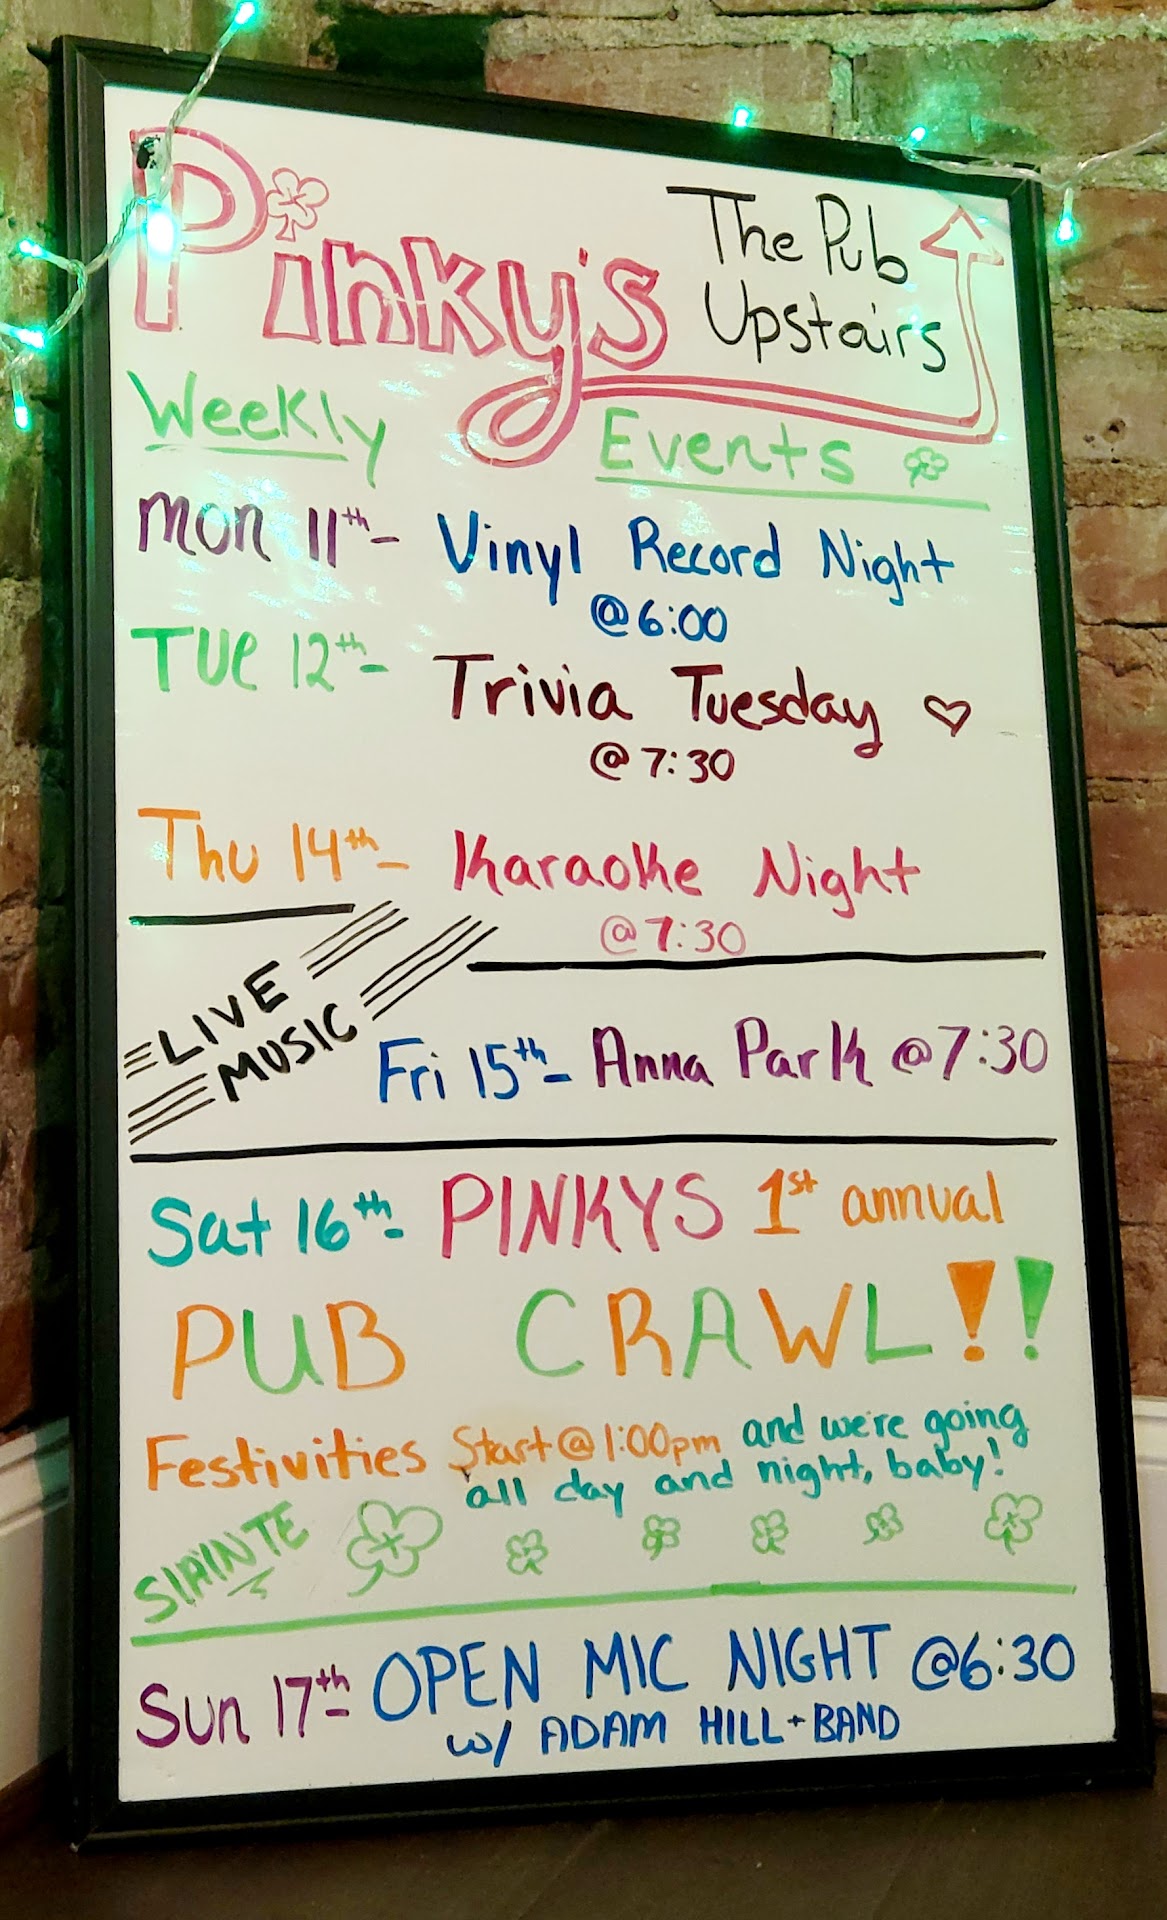 Pinky's
The Pub
Upstairs
Weekly Events
Mon 11th - Vinyl Record Night
@6:00
TUE 12th - Trivia Tuesday
@7:30
Thu 14th - Karaoke Night
@7:30
LIVE
MUSIC
Fri 15th - Anna Park @7:30
Sat 16th - PINKYS 1st annual
PUB CRAWL!!
Festivities Start @ 1:00pm and we're going
all day and night, baby!
SLAINTE
Sun 17th - OPEN MIC NIGHT @6:30
w/ ADAM HILL + BAND